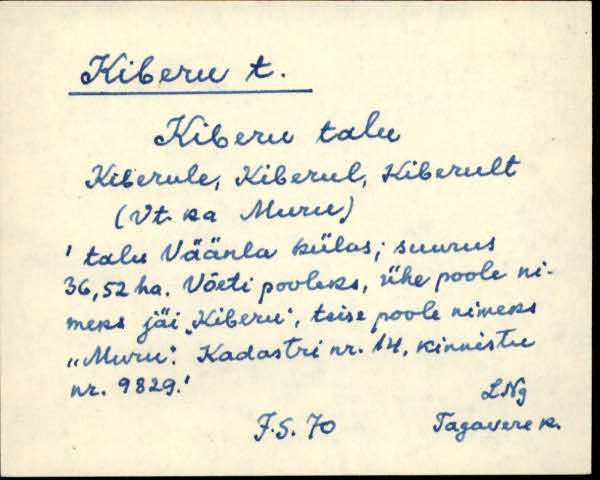 Kiberu t.
Kiberu talu
Kiberule, Kiberul, Kiberult
(Vt. ka Muru)
' talu Väänla külas; suurus
36,52 ha. Võeti pooleks, ühe poole ni-
meks jäi „Kiberu", teise poole nimeks
„Muru". Kadastri nr. 14, kinnistu
nr. 9829.'
LNg
J.S. 70
Tagavere k.